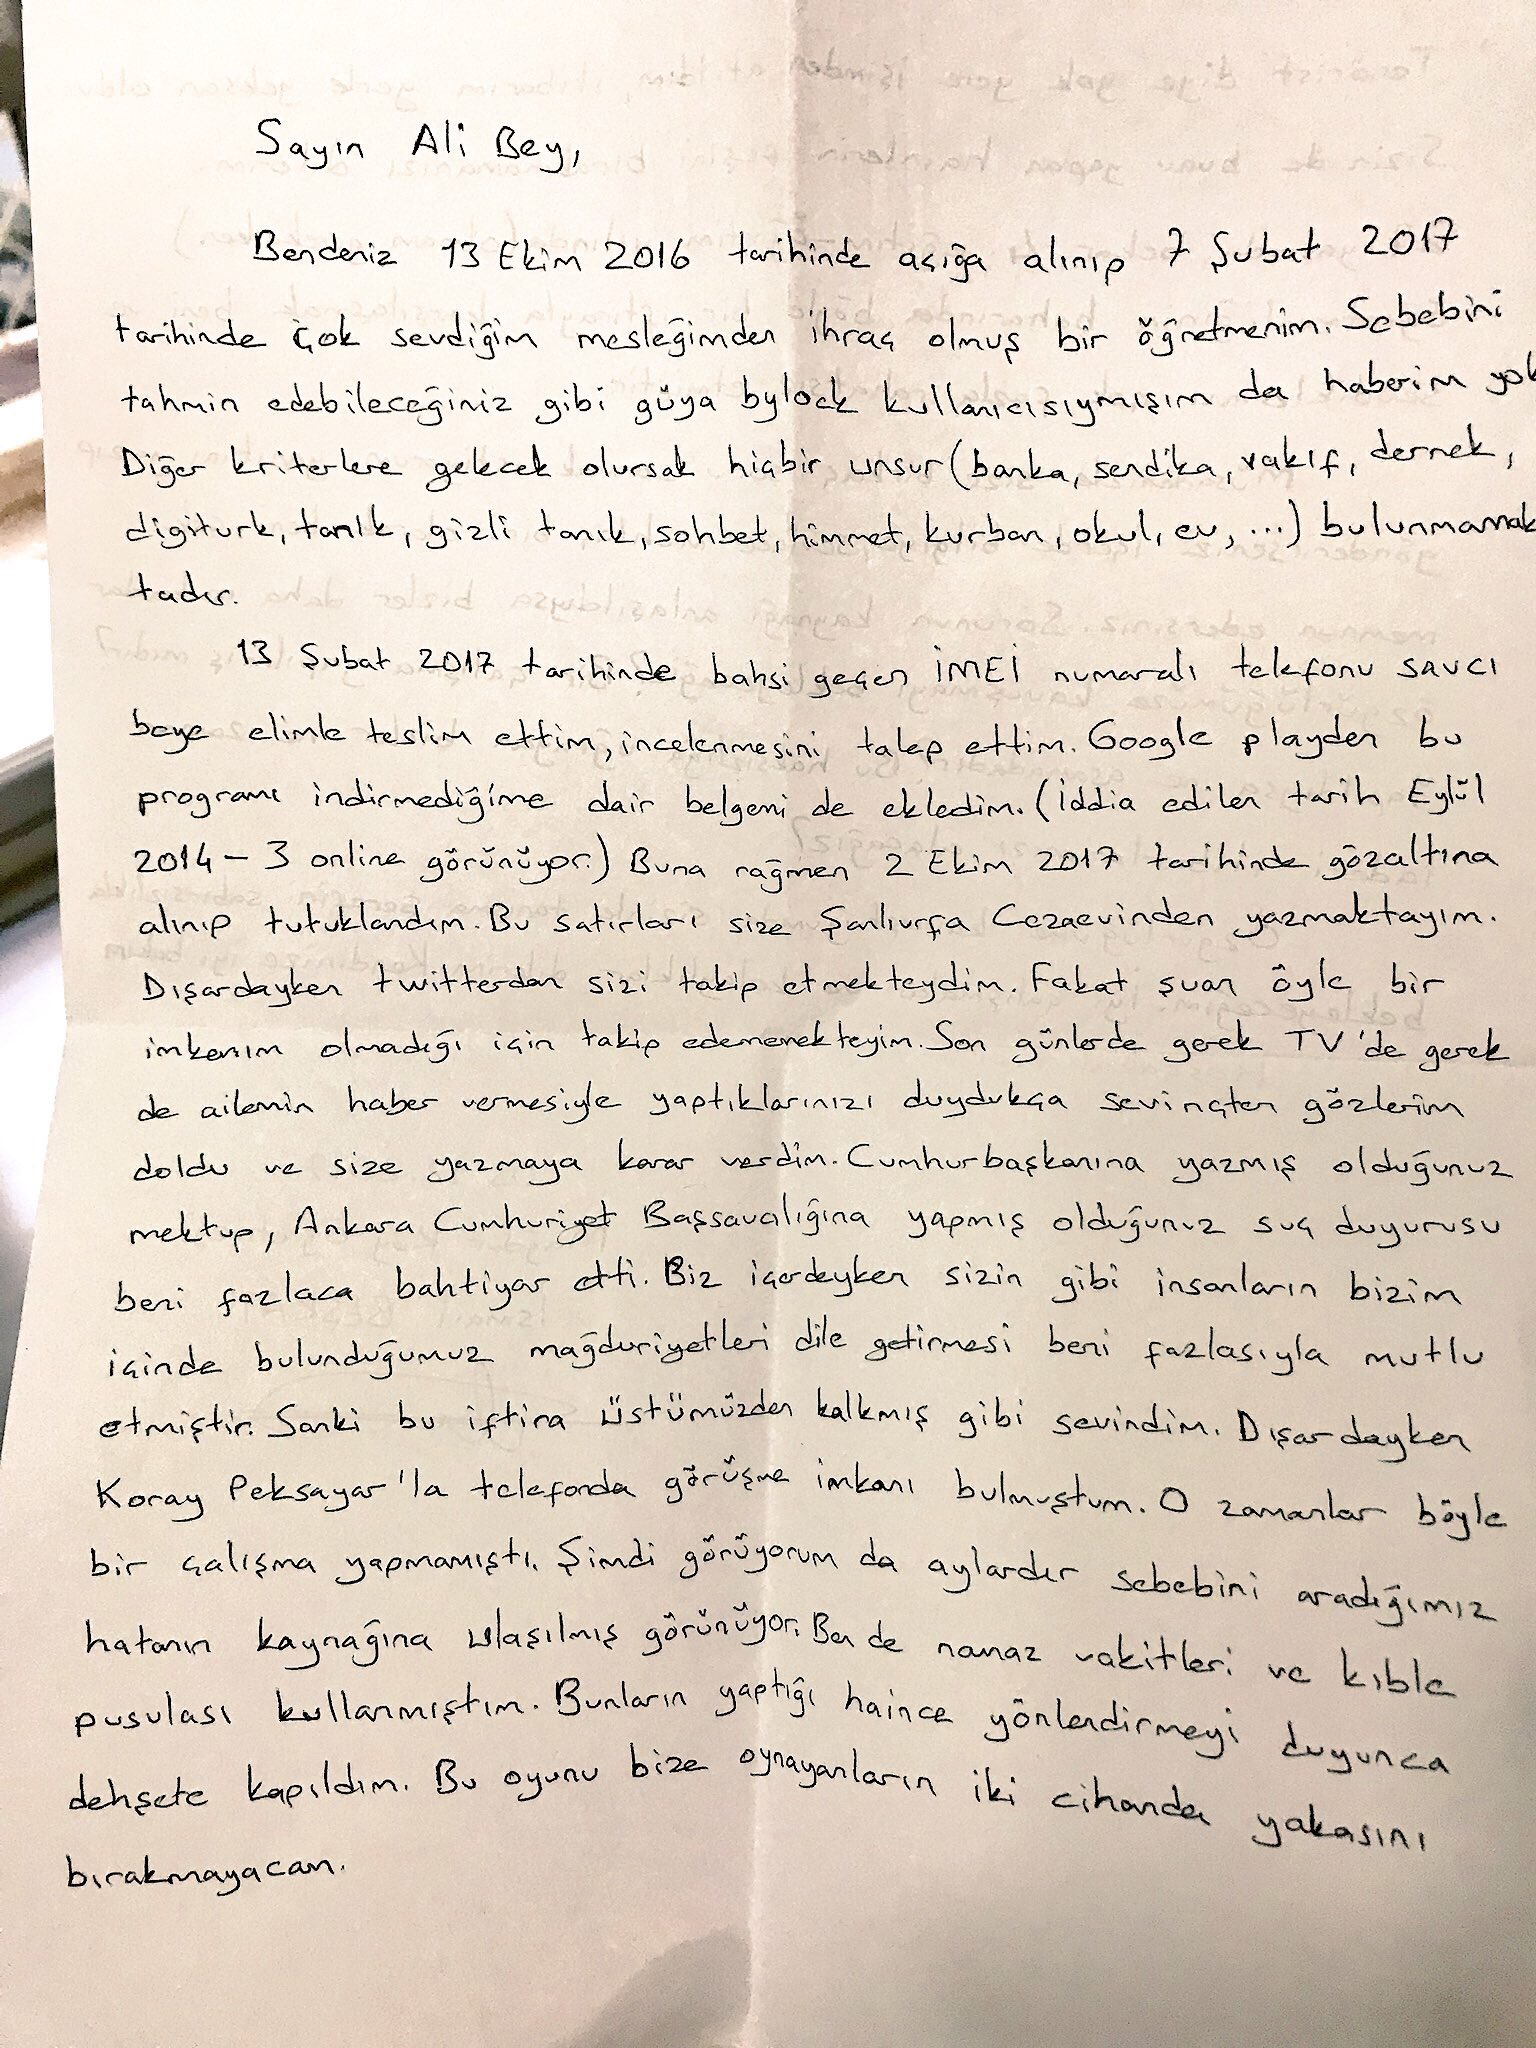 Sayın Ali Bey,
Bendeniz 13 Ekim 2016 tarihinde açığa alınıp 7 Şubat 2017
tarihinde çok sevdiğim mesleğimden ihraç olmuş bir öğretmenim. Sebebini
tahmin edebileceğiniz gibi güya bylock kullanıcısıymışım da haberim yok
Diğer kriterlere gelecek olursak hiçbir unsur (banka, sendika, vakıf, dernek,
digiturk, tanık, gizli tanık, sohbet, himmet, kurban, okul, ev, ...) bulunmamak
tadır.
13 Şubat 2017 tarihinde bahsi geçen İMEİ numaralı telefonu savcı
beye elimle teslim ettim, incelenmesini talep ettim. Google playden bu
programı indirmediğime dair belgemi de ekledim. (İddia edilen tarih Eylül
2014 – 3 online görünüyor.) Buna rağmen 2 Ekim 2017 tarihinde gözaltına
alınıp tutuklandım. Bu satırları size Şanlıurfa Cezaevinden yazmaktayım.
Dışardayken twitterdan sizi takip etmekteydim. Fakat şuan öyle bir
imkanım olmadığı için takip edememekteyim. Son günlerde gerek TV'de gerek
de ailemin haber vermesiyle yaptıklarınızı duydukça sevinçten gözlerim
doldu ve size yazmaya karar verdim. Cumhurbaşkanına yazmış olduğunuz
mektup, Ankara Cumhuriyet Başsavcılığına yapmış olduğunuz suç duyurusu
beni fazlaca bahtiyar etti. Biz içerdeyken sizin gibi insanların bizim
içinde bulunduğumuz mağduriyetleri dile getirmesi beni fazlasıyla mutlu
etmiştir. Sanki bu iftira üstümüzden kalkmış gibi sevindim. Dışardayken
Koray Peksayar'la telefonda görüşme imkanı bulmuştum. O zamanlar böyle
bir çalışma yapmamıştı. Şimdi görüyorum da aylardır sebebini aradığımız
hatanın kaynağına ulaşılmış görünüyor. Ben de namaz vakitleri ve kıble
pusulası kullanmıştım. Bunların yaptığı haince yönlendirmeyi duyunca
dehşete kapıldım. Bu oyunu bize oynayanların iki cihanda yakasını
bırakmayacam.